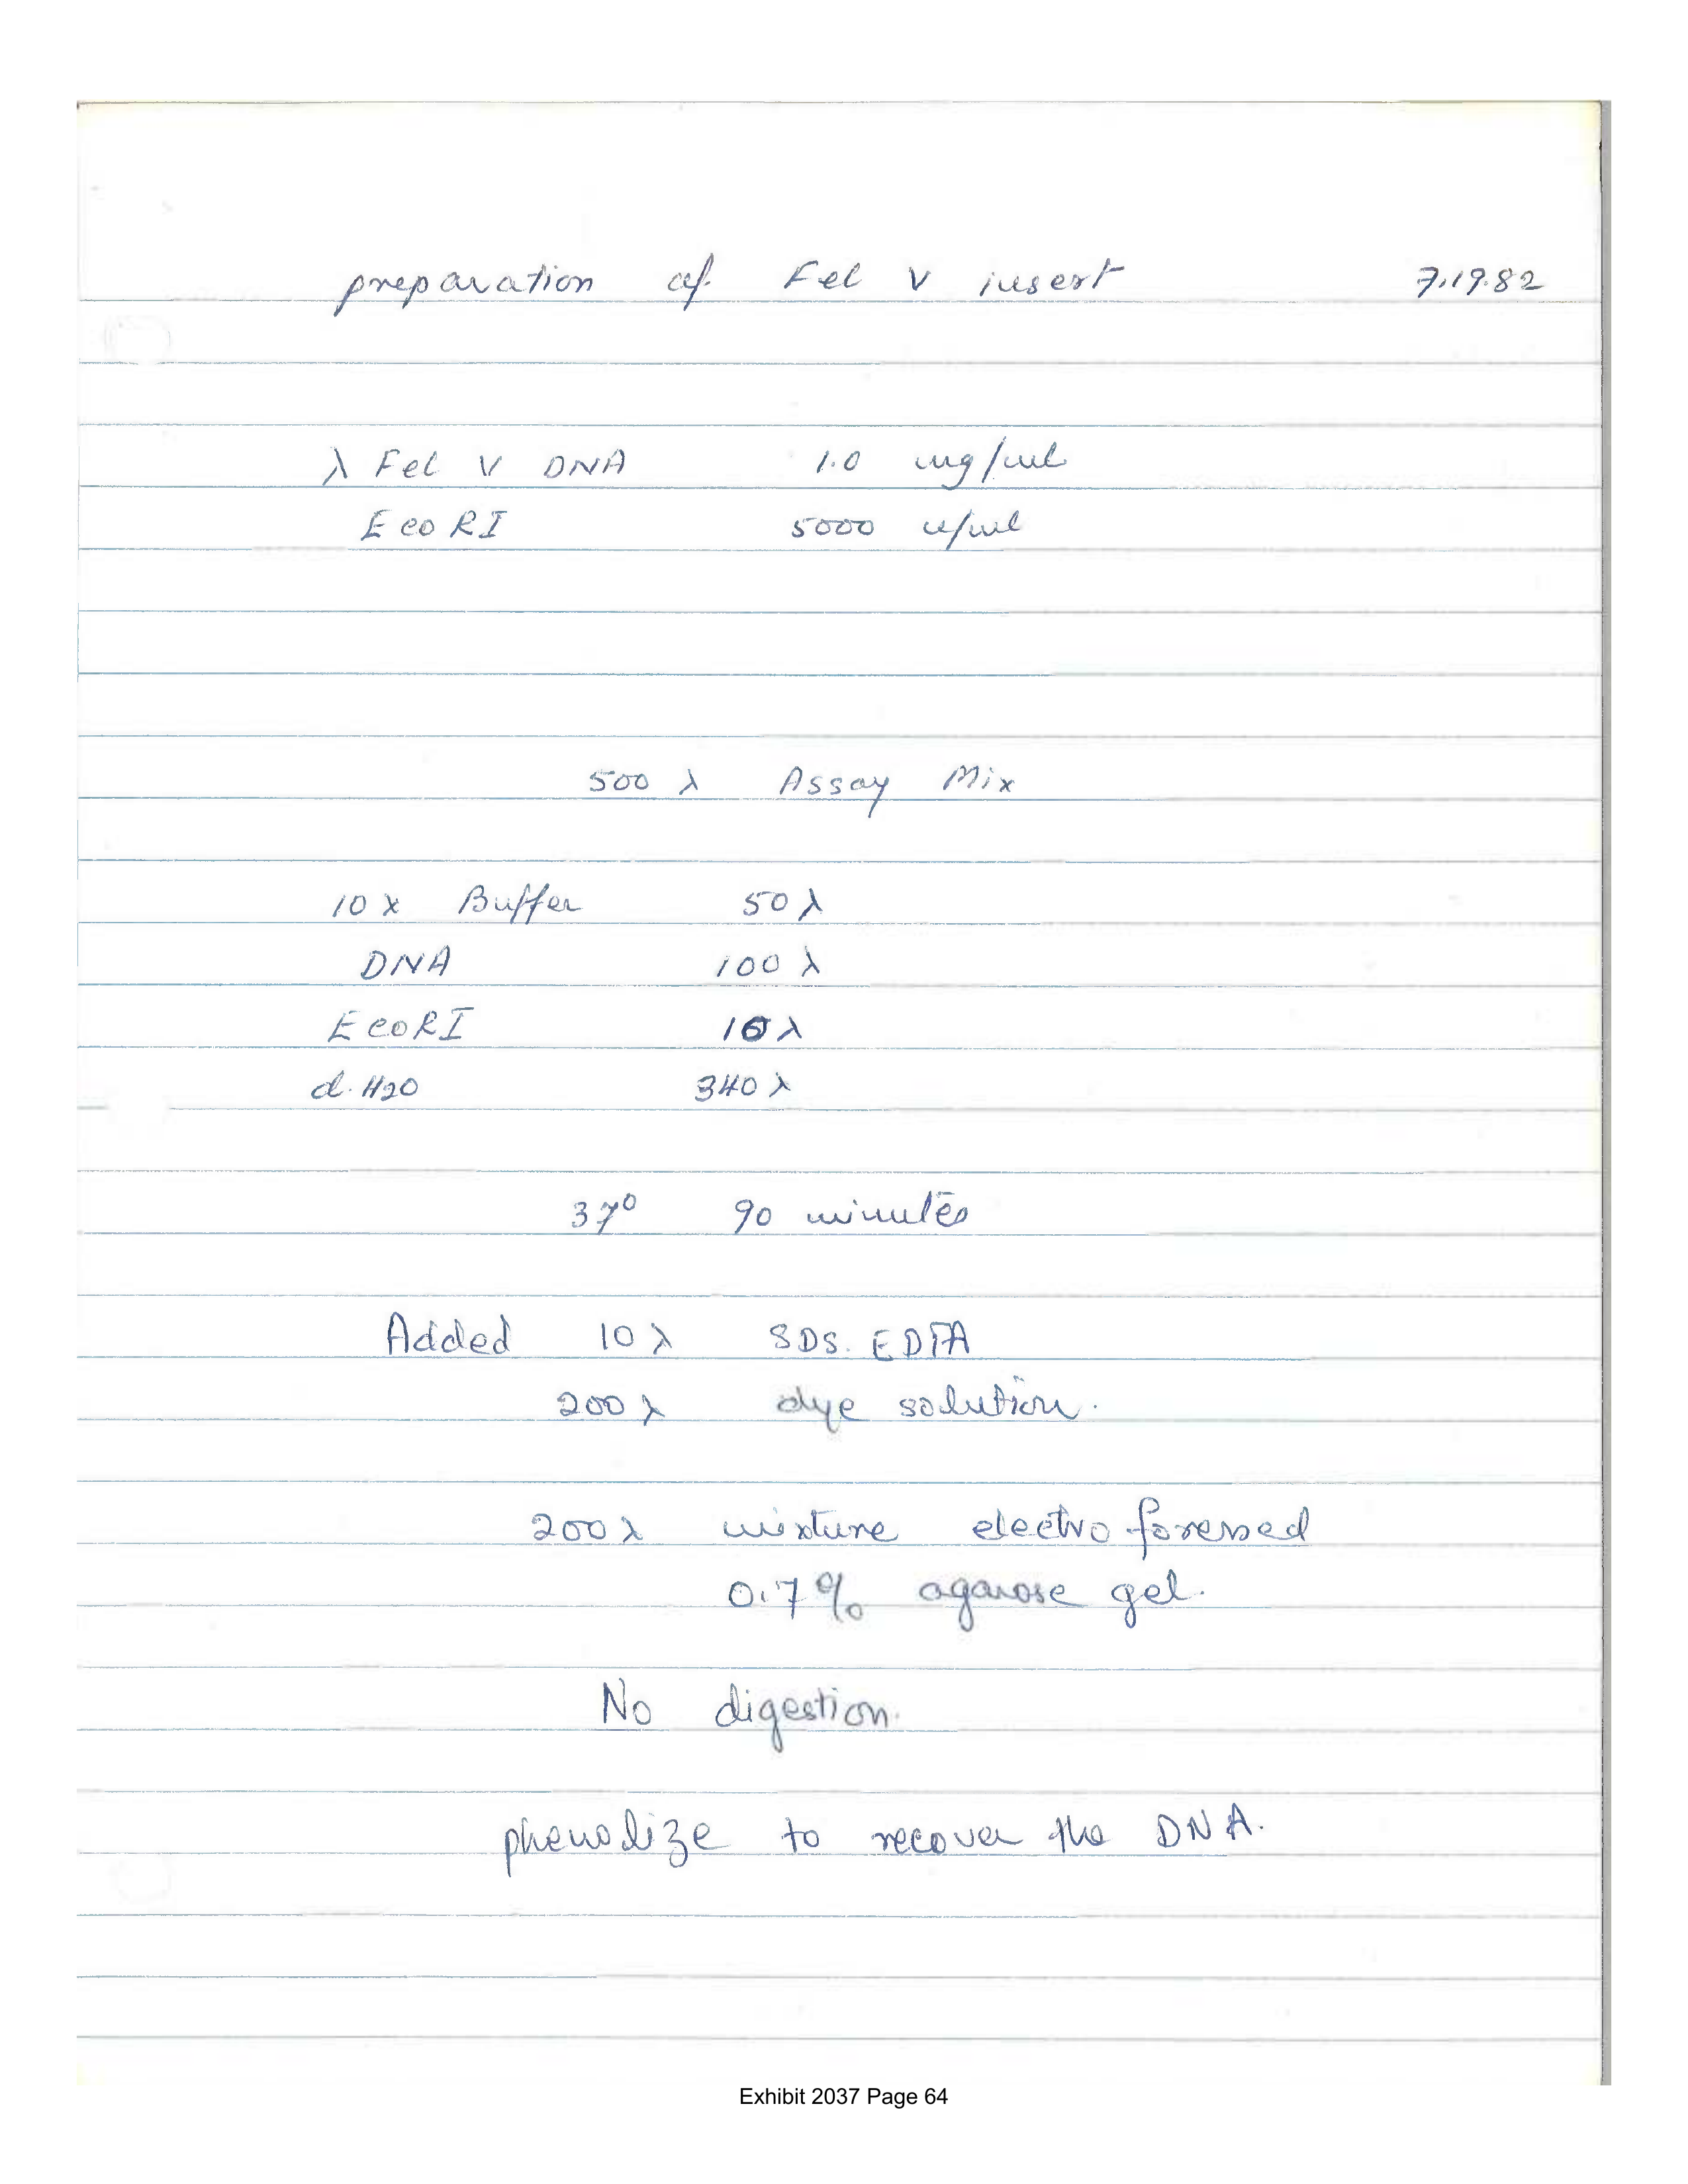 preparation of Fel V insert 7.19.82
λ Fel V DNA 1.0 mg/ml
EcoRI 5000 u/ml
500 λ Assay Mix
10 x Buffer 50 λ
DNA 100 λ
EcoRI 10 λ
d.H2O 340 λ
37° 90 minutes
Added 10 λ SDS. EDTA
200 λ dye solution.
200 λ mixture electroforessed
0.7% agarose gel.
No digestion.
phenolize to recover the DNA.
Exhibit 2037 Page 64